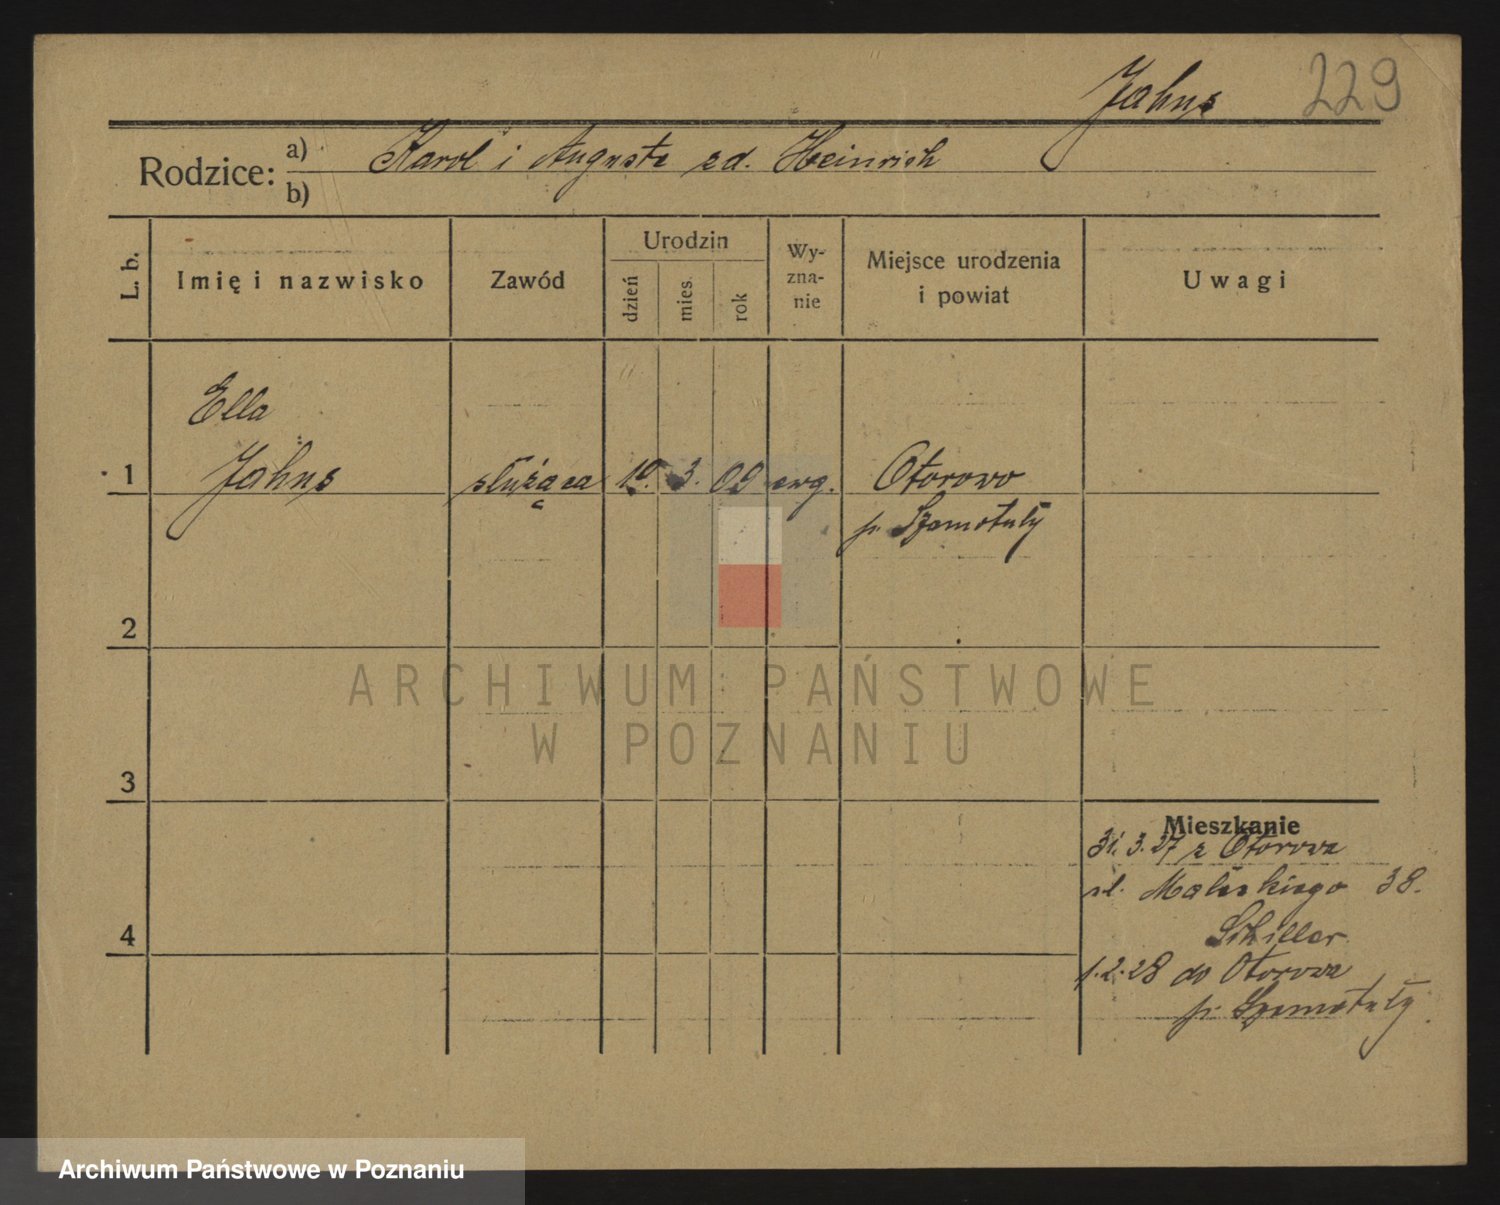 Jahns 229
Rodzice: a) Karol i Auguste zd. Heinrich
b)
L. b. Imię i nazwisko Zawód Urodzin dzień mies. rok Wy-zna-nie Miejsce urodzenia i powiat Uwagi
Ella
1 Jahns służąca 10. 3. 09 ewg. Otorowo
p. Szamotuły
2
3
4
Mieszkanie
31. 3. 27 z Otorowa
ul. 38.
Schiller
1. 2. 28 do Otorowa
p. Szamotuły
ARCHIWUM PAŃSTWOWE
W POZNANIU
Archiwum Państwowe w Poznaniu